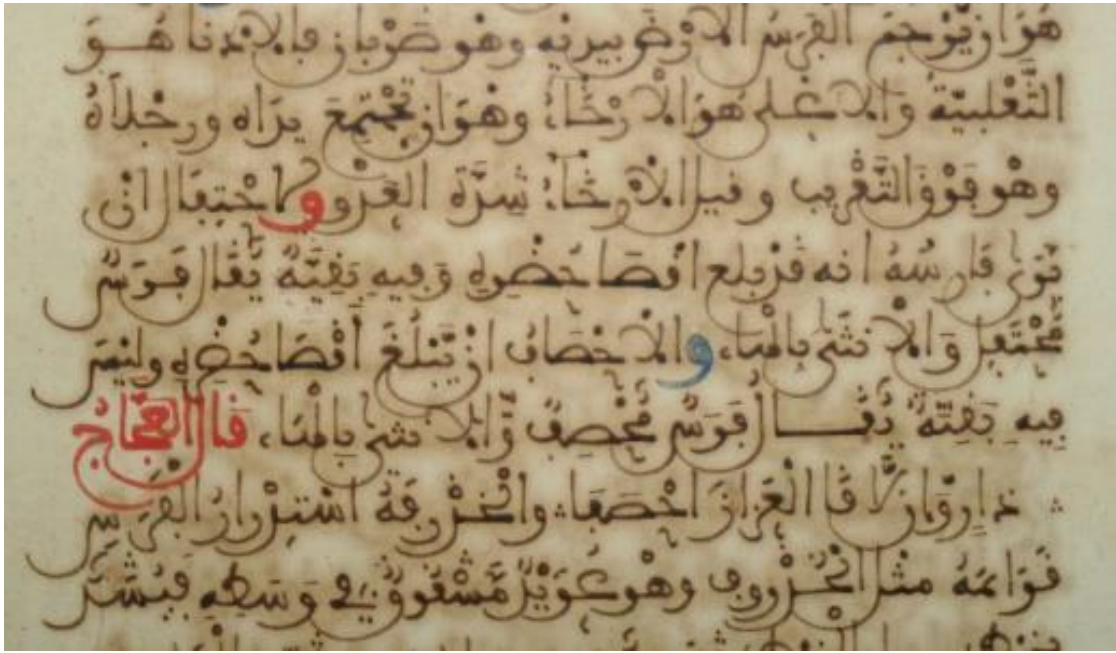 هو ان يرجم الفرس الارض بيديه وهو ضربان فالادنا هو
الثعلبية والاعلى هو الارخاء وهو ان تجتمع يداه ورجلاه
وهو فوق التقريب وقيل الارخاء شدة العدو والاحتفال ان
يرى فارسه انه قد بلغ اقصا حضره وفيه بقية يقال فرس
محتفل والانثى بالهاء والاخصاف ان يبلغ اقصا حضره وليس
فيه بقية يقال فرس مخصف والانثى بالهاء قال العجاج
ذار وان لاقا العزاز احصفا والخذرفة استدرار الفرس
قوائمه مثل الخذروف وهو عويد مشقوق في وسطه فيشد